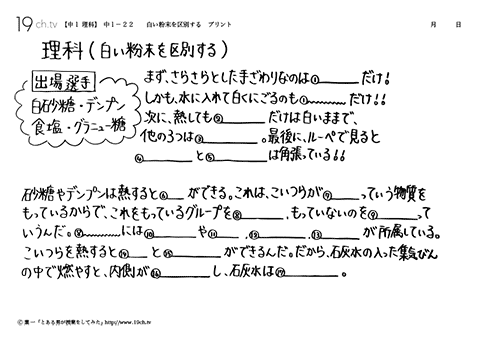 19ch.tv 【中1 理科】 中1-22 白い粉末を区別する プリント 月 日
理科(白い粉末を区別する)
出場選手
白砂糖・デンプン
食塩・グラニュー糖
まず、さらさらとした手ざわりなのは①____だけ!
しかも、水に入れて白くにごるのも①____だけ!!
次に、熱しても②____だけは白いままで、
他の3つは③____。最後に、ルーペで見ると
④____と⑤____は角張っている!!
砂糖やデンプンは熱すると⑥__ができる。これは、こいつらが⑦____っていう物質を
もっているからで、これをもっているグループを⑧____、もっていないのを⑨____って
いうんだ。⑧____には⑩____や⑪____、⑫____、⑬____が所属している。
こいつらを熱すると⑭__と⑮____ができるんだ。だから、石灰水の入った集気びん
の中で燃やすと、内側が⑯____し、石灰水は⑰____。
© 葉一「とある男が授業をしてみた」http://www.19ch.tv